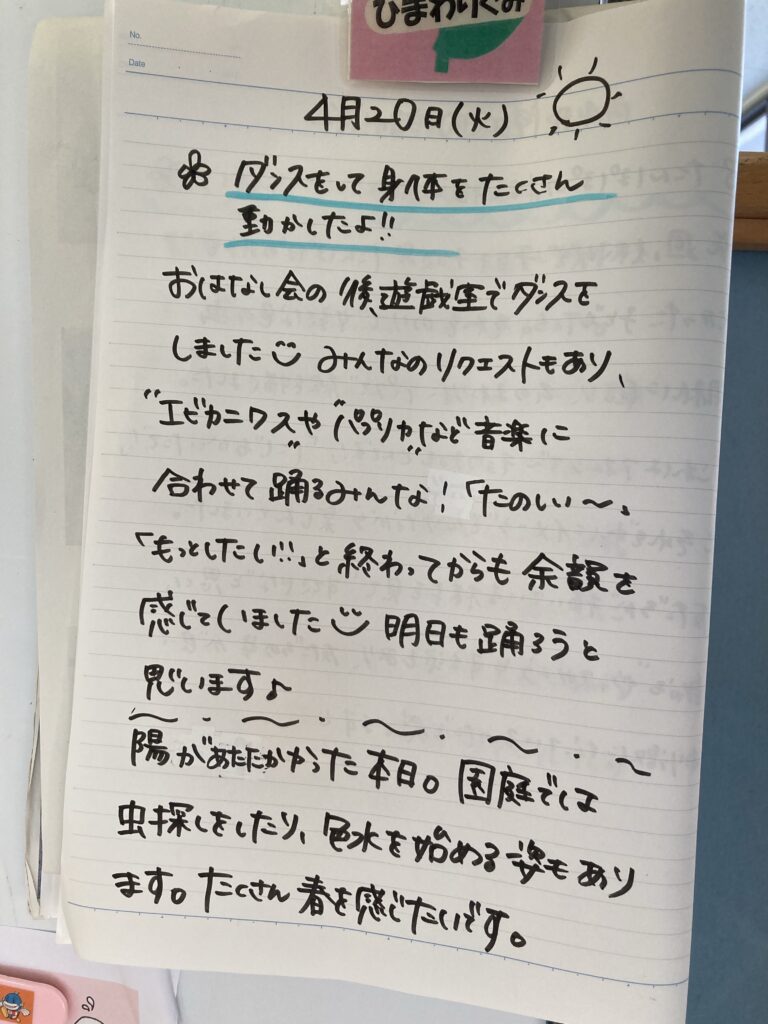 ひまわりぐみ
No.
Date
4月20日(火)
ダンスをして身体をたくさん
動かしたよ!!
おはなし会の後、遊戯室でダンスを
しました みんなのリクエストもあり、
"エビカニクス"や"パプリカ"など音楽に
合わせて踊るみんな!「たのしい〜」
「もっとしたい!!」と終わってからも余韻を
感じていました 明日も踊ろうと
思います♪
〜・〜・〜・〜・〜
陽があたたかかった本日。園庭では
虫探しをしたり、色水を始める姿もあり
ます。たくさん春を感じたいです。